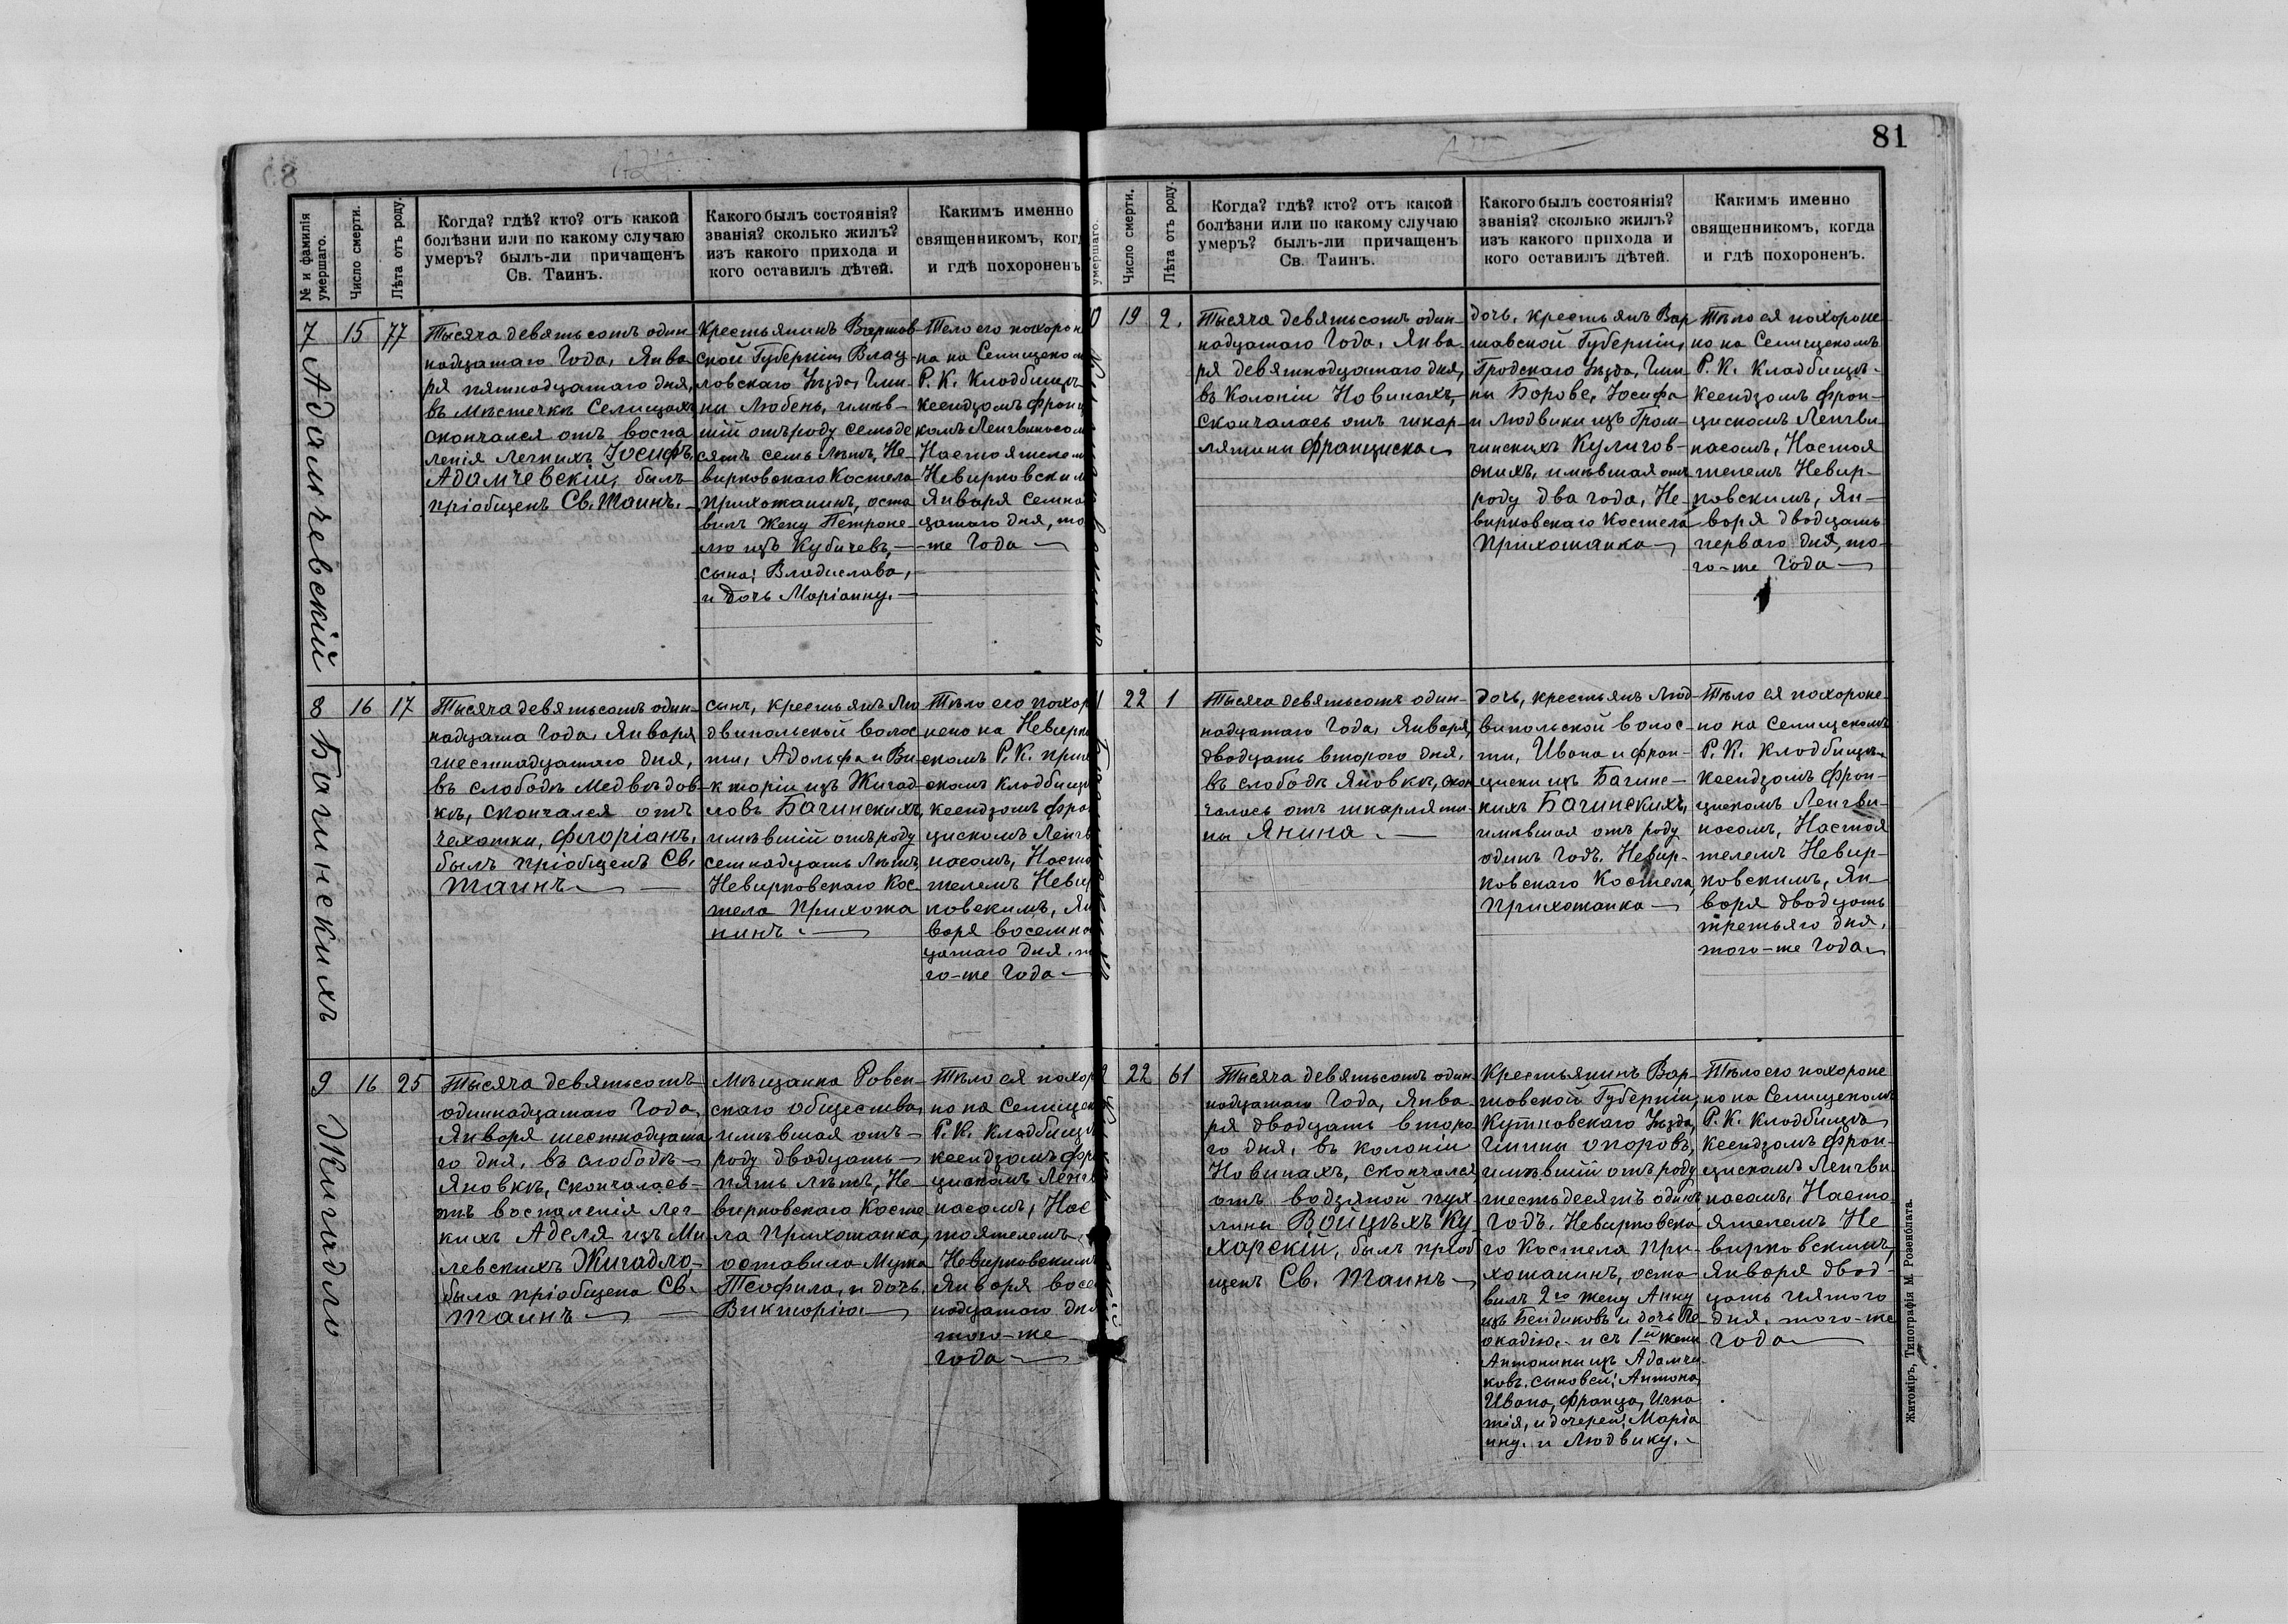 81
№ и фамилія умершаго.
Число смерти.
Лѣта отъ роду.
Когда? гдѣ? кто? отъ какой
болѣзни или по какому случаю
умеръ? былъ-ли причащенъ
Св. Таинъ.
Какого былъ состоянія?
званія? сколько жилъ?
изъ какого прихода и
кого оставилъ дѣтей.
Какимъ именно
священникомъ, ког
и гдѣ похороненъ
7 Адамчевскій
15
77
Тысяча девятьсотъ один-
надцатаго Года, Янва-
ря пятнадцатаго дня,
въ мѣстечкѣ Селищахъ
скончался отъ воспа
ленія Легкихъ Іосифъ
Адамчевскій, былъ
пріобщенъ Св. Таинъ.
Крестьянинъ Варшав-
ской Губерніи, Влац-
ловскаго Уѣзда, Гми-
ны Любень, имѣв-
шій отъ роду семьде
сятъ семь Лѣтъ, Не-
вирковскаго Костела
Прихожанинъ, оста
вилъ Жену Петроне-
лю изъ Кубичевъ,
сына: Владислава,
и дочь Маріанну.
Тело его похорон
на на Селищском
Р. К. Кладбищѣ
Ксендзомъ Франц
комъ Ленгвинасом
Настоятелем
Невирковским
Января семна
цатаго дня, то
-же Года
8 Багинскихъ
16
17
Тысяча девятьсотъ один-
надцата Года, Января
шестнадцатаго дня,
въ слободѣ Медвѣдов-
кѣ, скончался отъ
чехотки, Флоріанъ,
былъ пріобщенъ Св.
Таинъ
сынъ, крестьянъ Лю
двипольской волос
ти, Адольфа и Ви-
кторіи изъ Жигад-
ловъ Багинскихъ,
имѣвшій отъ роду
семнадцать Лѣтъ,
Невирковскаго Кос-
тела Прихожа
нинъ.
Тѣло его похор
нено на Невирко
скомъ Р. К. прих
скомъ Кладбищѣ
Ксендзомъ Фран
цискомъ Ленгв
насомъ, Насто
телемъ Невир
ковскимъ, Ян
варя восемна
цатаго дня, т
го-же Года
9 Жигадло
16
25
Тысяча девятьсотъ
одиннадцатаго Года,
Января шестнадцата
го дня, въ слободѣ
Яновкѣ, скончалась
отъ воспаленія Лег-
кихъ Аделя изъ Ми
левскихъ Жигадло,
была пріобщена Св.
Таинъ
Мѣщанка Ровен-
скаго общества,
имѣвшая отъ
роду двадцать
пять Лѣтъ, Не-
вирковскаго Косте
ла Прихожанка,
оставила Мужа
Теофила, и дочь
Викторію.
Тѣло ея похор
но на Селищск
Р. К. Кладбищѣ
Ксендзомъ Фра
цискомъ Ленгв
насомъ, Нас
тоятелемъ
Невирковскимъ
Января восе
надцатаго дня
того-же
Года
умершаго.
Число смерти.
Лѣта отъ роду.
Когда? гдѣ? кто? отъ какой
болѣзни или по какому случаю
умеръ? былъ-ли причащенъ
Св. Таинъ.
Какого былъ состоянія?
званія? сколько жилъ?
изъ какого прихода и
кого оставилъ дѣтей.
Какимъ именно
священникомъ, когда
и гдѣ похороненъ.
19
2.
Тысяча девятьсотъ один-
надцатаго Года, Янва-
ря девятнадцатаго дня,
въ Колоніи Новинахъ,
скончалась отъ шкар-
лятины Франциска
дочь, крестьянъ Вар
шавской Губерніи,
Гродскаго Уѣзда, Гми-
ны Борове, Іосифа
и Людвики изъ Грам-
чинскихъ Кулигов-
скихъ, имѣвшая отъ
роду два года, Не-
вирковскаго Костела
Прихожанка
Тѣло ея похороне
но на Селищскомъ
Р. К. Кладбищѣ
Ксендзомъ Фран-
цискомъ Ленгви-
насомъ, Настоя
телемъ Невир-
ковскимъ, Ян-
варя двадцать
перваго дня, то-
го-же Года
22
1
Тысяча девятьсотъ один-
надцатаго Года, Января,
двадцать второго дня,
въ слободѣ Яновкѣ, скон
чалась отъ шкарляти-
ны Янина.
дочь, крестьянъ Люд-
випольской волос-
ти, Ивана и Фран-
циски изъ Багинс-
кихъ Багинскихъ,
имѣвшая отъ роду
одинъ Годъ. Невир-
ковскаго Костела,
Прихожанка
Тѣло ея похороне-
но на Селищскомъ
Р. К. Кладбищѣ
Ксендзомъ Фран-
цискомъ Ленгви-
насомъ, Настоя
телемъ Невир-
ковскимъ, Ян-
варя двадцать
третьяго дня,
того-же Года
22
61
Тысяча девятьсотъ один-
надцатаго Года, Янва-
ря двадцать второ
го дня, въ колоніи
Новинахъ, скончался
отъ водзяной пух-
лины Войцѣхъ Ку
харскій, былъ пріоб
щенъ Св. Таинъ
Крестьянинъ Вар-
шавской Губерніи,
Кутновскаго Уѣзда,
Гмины Опоровъ,
имѣвшій отъ роду
шестьдесятъ одинъ
Годъ. Невирковска
го Костела При-
хожанинъ, оста
вилъ 2го жену Анну
изъ Бендиковъ и дочь Ле
окадію, и съ 1й жены
Антонины изъ Адамчи-
ковъ, сыновей: Антона,
Ивана, Франца, Игна
тія, и дочерей: Маріа
нну, и Людвику.
Тѣло его похороне
но на Селищскомъ
Р. К. Кладбищѣ
Ксендзомъ Фран-
цискомъ Ленгви
насомъ, Насто-
ятелемъ Не
вирковскимъ,
Января двад-
цать пятого
дня, того-же
Года
Житоміръ, Типографія М. Розенблата.